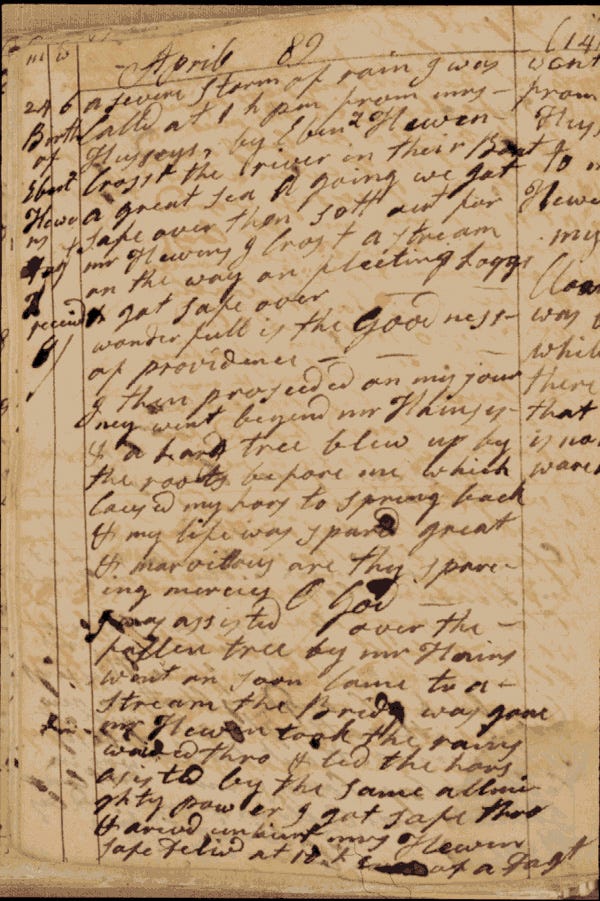 m w
April 89
(141
24 6
Birth
of
Ebenz
Hewe
ns
receivd
a severe Storm of rain I was
Calld at 1 h pm from mrs
Husseys, by Ebenz Hewen
Crosst the river in their Boat
a great sea A going we got
safe over then sett out for
mr Hewins I Crost a stream
on the way on fleeting Loggs
& got safe over
wonder full is the Good ness
of providence
I then proseeded on my jour
ney went beyond mr Hainses
& a hard tree blew up by
the roots before me which
Caused my hors to spring back
& my life was spared great
& marvillous are thy spare
ing mercies O God
I was assisted over the
fallen tree by mr Hains
went on soon Came to a
stream the Bridg was gone
mr Hewin took the rains
waided thro & led the hors
asisted by the same allmi
ghty power I got safe thro
& arivd unhurt mrs Hewin
safe delivd at 10 h of a Dagt
went
from
to
my
was
while
there
that
is no